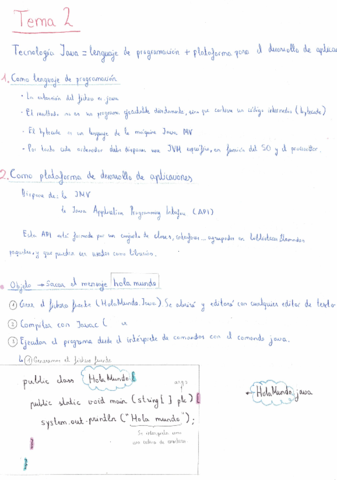 Tema 2
Tecnología Java = lenguaje de programación + plataforma para el desarrollo de aplicac
1. Como lenguaje de programación
• La extensión del fichero es java
• El resultado no es un programa ejecutable directamente, sino que contiene un código intermedio (bytecode)
• El bytecode es un lenguaje de la máquina Java MV
• Por tanto cada ordenador debe disponer una JVM específica, en función del SO y el procesador.
2. Como plataforma de desarrollo de aplicaciones
Dispone de: la JMV
la Java Application Programming Interface (API)
Esta API está formada por un conjunto de clases, interfaces... agrupados en bibliotecas llamadas
paquetes, y que pueden ser usados como librerías.
Objeto → Sacar el mensaje hola mundo
① Crear el fichero fuente (HolaMundo.Java) Se abrirá y editará con cualquier editor de texto
② Compilar con Javac (
③ Ejecutar el programa desde el intérprete de comandos con el comando java.
① Generamos el fichero fuente
public class HolaMundo {
args
public static void main (string [ ] ple) {
system.out.println ("Hola mundo");
Se interpreta como
una cadena de caracteres
}
}
HolaMundo.java